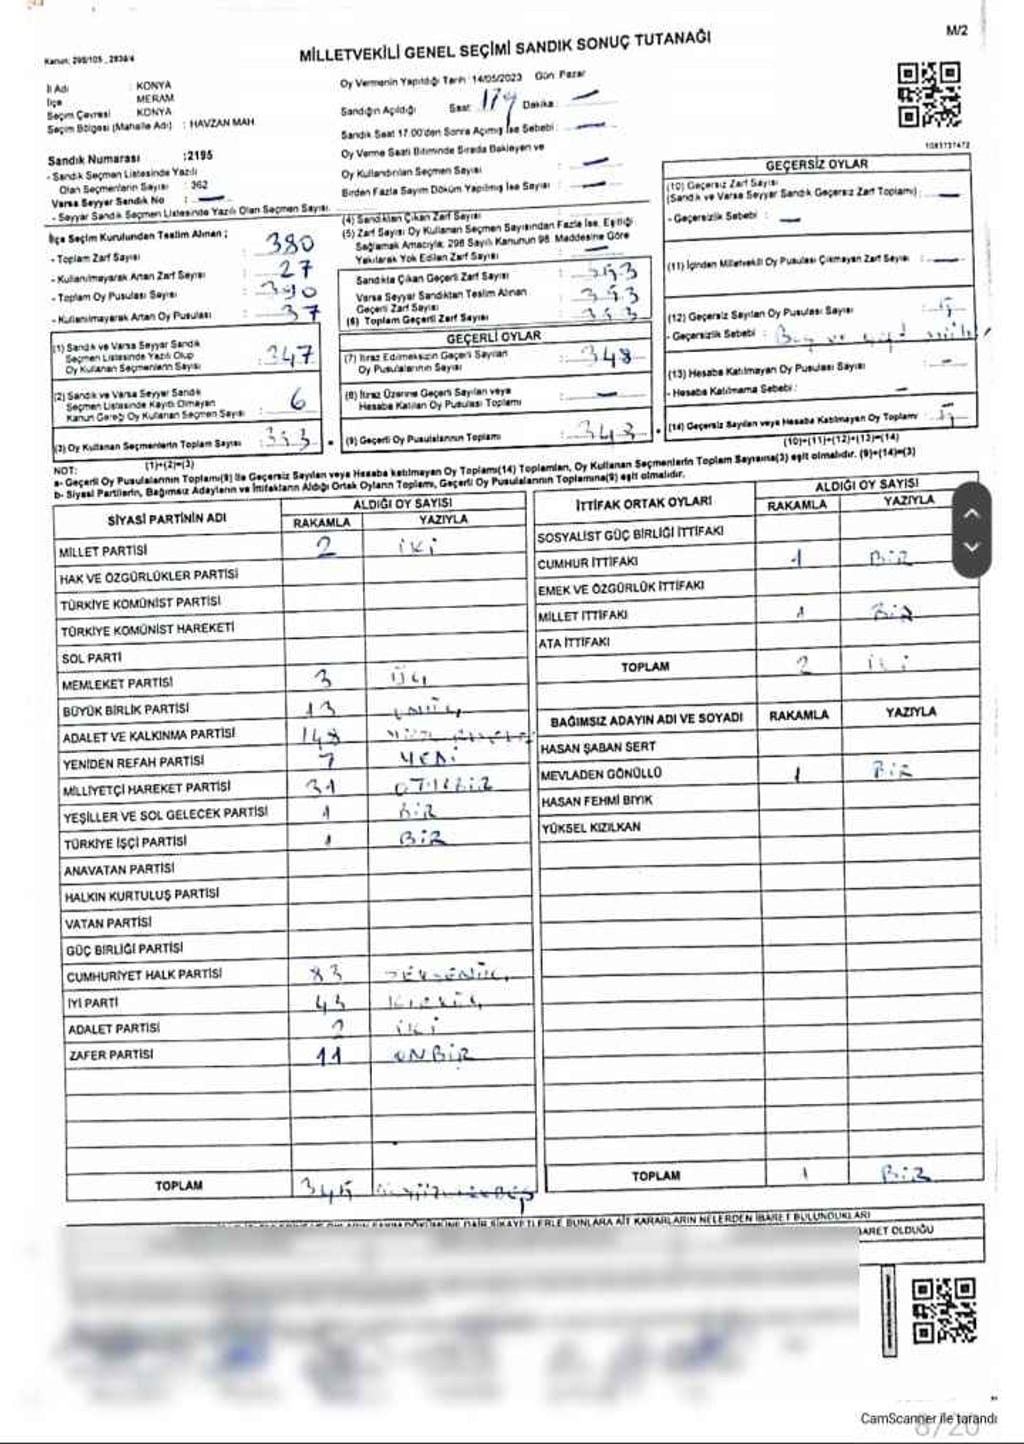 M/2
Kanun: 298/105 , 2839/4
MİLLETVEKİLİ GENEL SEÇİMİ SANDIK SONUÇ TUTANAĞI
İl Adı : KONYA
İlçe : MERAM
Seçim Çevresi : KONYA
Seçim Bölgesi (Mahalle Adı) : HAVZAN MAH
Sandık Numarası :2195
- Sandık Seçmen Listesinde Yazılı
Olan Seçmenlerin Sayısı : 362
Varsa Seyyar Sandık No : —
- Seyyar Sandık Seçmen Listesinde Yazılı Olan Seçmen Sayısı
Oy Vermenin Yapıldığı Tarih :14/05/2023 Gün: Pazar
Sandığın Açıldığı Saat: Dakika: —
Sandık Saat 17.00'den Sonra Açılmış İse Sebebi: —
Oy Verme Saati Bitiminde Sırada Bekleyen ve
Oy Kullandırılan Seçmen Sayısı : —
Birden Fazla Sayım Döküm Yapılmış İse Sayısı : —
1083737472
İlçe Seçim Kurulundan Teslim Alınan ;
- Toplam Zarf Sayısı : 380
- Kullanılmayarak Artan Zarf Sayısı : 27
- Toplam Oy Pusulası Sayısı : 390
- Kullanılmayarak Artan Oy Pusulası : 37
(1) Sandık ve Varsa Seyyar Sandık
Seçmen Listesinde Yazılı Olup
Oy Kullanan Seçmenlerin Sayısı : 347
(2) Sandık ve Varsa Seyyar Sandık
Seçmen Listesinde Kayıtlı Olmayan
Kanun Gereği Oy Kullanan Seçmen Sayısı : 6
(3) Oy Kullanan Seçmenlerin Toplam Sayısı : 353
(1)+(2)=(3)
(4) Sandıktan Çıkan Zarf Sayısı
(5) Zarf Sayısı Oy Kullanan Seçmen Sayısından Fazla İse, Eşitliği
Sağlamak Amacıyla; 298 Sayılı Kanunun 98. Maddesine Göre
Yakılarak Yok Edilen Zarf Sayısı : —
Sandıkta Çıkan Geçerli Zarf Sayısı : 353
Varsa Seyyar Sandıktan Teslim Alınan
Geçerli Zarf Sayısı : 353
(6) Toplam Geçerli Zarf Sayısı : 353
GEÇERLİ OYLAR
(7) İtiraz Edilmeksizin Geçerli Sayılan
Oy Pusulalarının Sayısı : 348
(8) İtiraz Üzerine Geçerli Sayılan veya
Hesaba Katılan Oy Pusulası Toplamı : —
(9) Geçerli Oy Pusulalarının Toplamı : 348
GEÇERSİZ OYLAR
(10) Geçersiz Zarf Sayısı
(Sandık ve Varsa Seyyar Sandık Geçersiz Zarf Toplamı) : —
- Geçersizlik Sebebi : —
(11) İçinden Milletvekili Oy Pusulası Çıkmayan Zarf Sayısı : —
(12) Geçersiz Sayılan Oy Pusulası Sayısı : 5
- Geçersizlik Sebebi :
(13) Hesaba Katılmayan Oy Pusulası Sayısı : —
- Hesaba Katılmama Sebebi : —
(14) Geçersiz Sayılan veya Hesaba Katılmayan Oy Toplamı : 5
(10)+(11)+(12)+(13)=(14)
NOT:
a- Geçerli Oy Pusulalarının Toplamı(9) ile Geçersiz Sayılan veya Hesaba katılmayan Oy Toplamı(14) Toplamları, Oy Kullanan Seçmenlerin Toplam Sayısına(3) eşit olmalıdır. (9)+(14)=(3)
b- Siyasi Partilerin, Bağımsız Adayların ve İttifakların Aldığı Ortak Oyların Toplamı, Geçerli Oy Pusulalarının Toplamına(9) eşit olmalıdır.
SİYASİ PARTİNİN ADI ALDIĞI OY SAYISI
RAKAMLA YAZIYLA
MİLLET PARTİSİ 2 İKİ
HAK VE ÖZGÜRLÜKLER PARTİSİ
TÜRKİYE KOMÜNİST PARTİSİ
TÜRKİYE KOMÜNİST HAREKETİ
SOL PARTİ
MEMLEKET PARTİSİ 3 ÜÇ
BÜYÜK BİRLİK PARTİSİ 13 ONÜÇ
ADALET VE KALKINMA PARTİSİ 148
YENİDEN REFAH PARTİSİ 7 YEDİ
MİLLİYETÇİ HAREKET PARTİSİ 31 OTUZBİR
YEŞİLLER VE SOL GELECEK PARTİSİ 1 BİR
TÜRKİYE İŞÇİ PARTİSİ 1 BİR
ANAVATAN PARTİSİ
HALKIN KURTULUŞ PARTİSİ
VATAN PARTİSİ
GÜÇ BİRLİĞİ PARTİSİ
CUMHURİYET HALK PARTİSİ 83 SEKSENÜÇ
İYİ PARTİ 43 KIRKÜÇ
ADALET PARTİSİ 2 İKİ
ZAFER PARTİSİ 11 ONBİR
TOPLAM 345
İTTİFAK ORTAK OYLARI ALDIĞI OY SAYISI
RAKAMLA YAZIYLA
SOSYALİST GÜÇ BİRLİĞİ İTTİFAKI
CUMHUR İTTİFAKI 1 BİR
EMEK VE ÖZGÜRLÜK İTTİFAKI
MİLLET İTTİFAKI 1 BİR
ATA İTTİFAKI
TOPLAM 2 İKİ
BAĞIMSIZ ADAYIN ADI VE SOYADI RAKAMLA YAZIYLA
HASAN ŞABAN SERT
MEVLADEN GÖNÜLLÜ 1 BİR
HASAN FEHMİ BIYIK
YÜKSEL KIZILKAN
TOPLAM 1 BİR
DÖKÜMÜNE DAİR ŞİKAYETLERLE BUNLARA AİT KARARLARIN NELERDEN İBARET BULUNDUKLARI
İBARET OLDUĞU
CamScanner ile tarandı
8/20